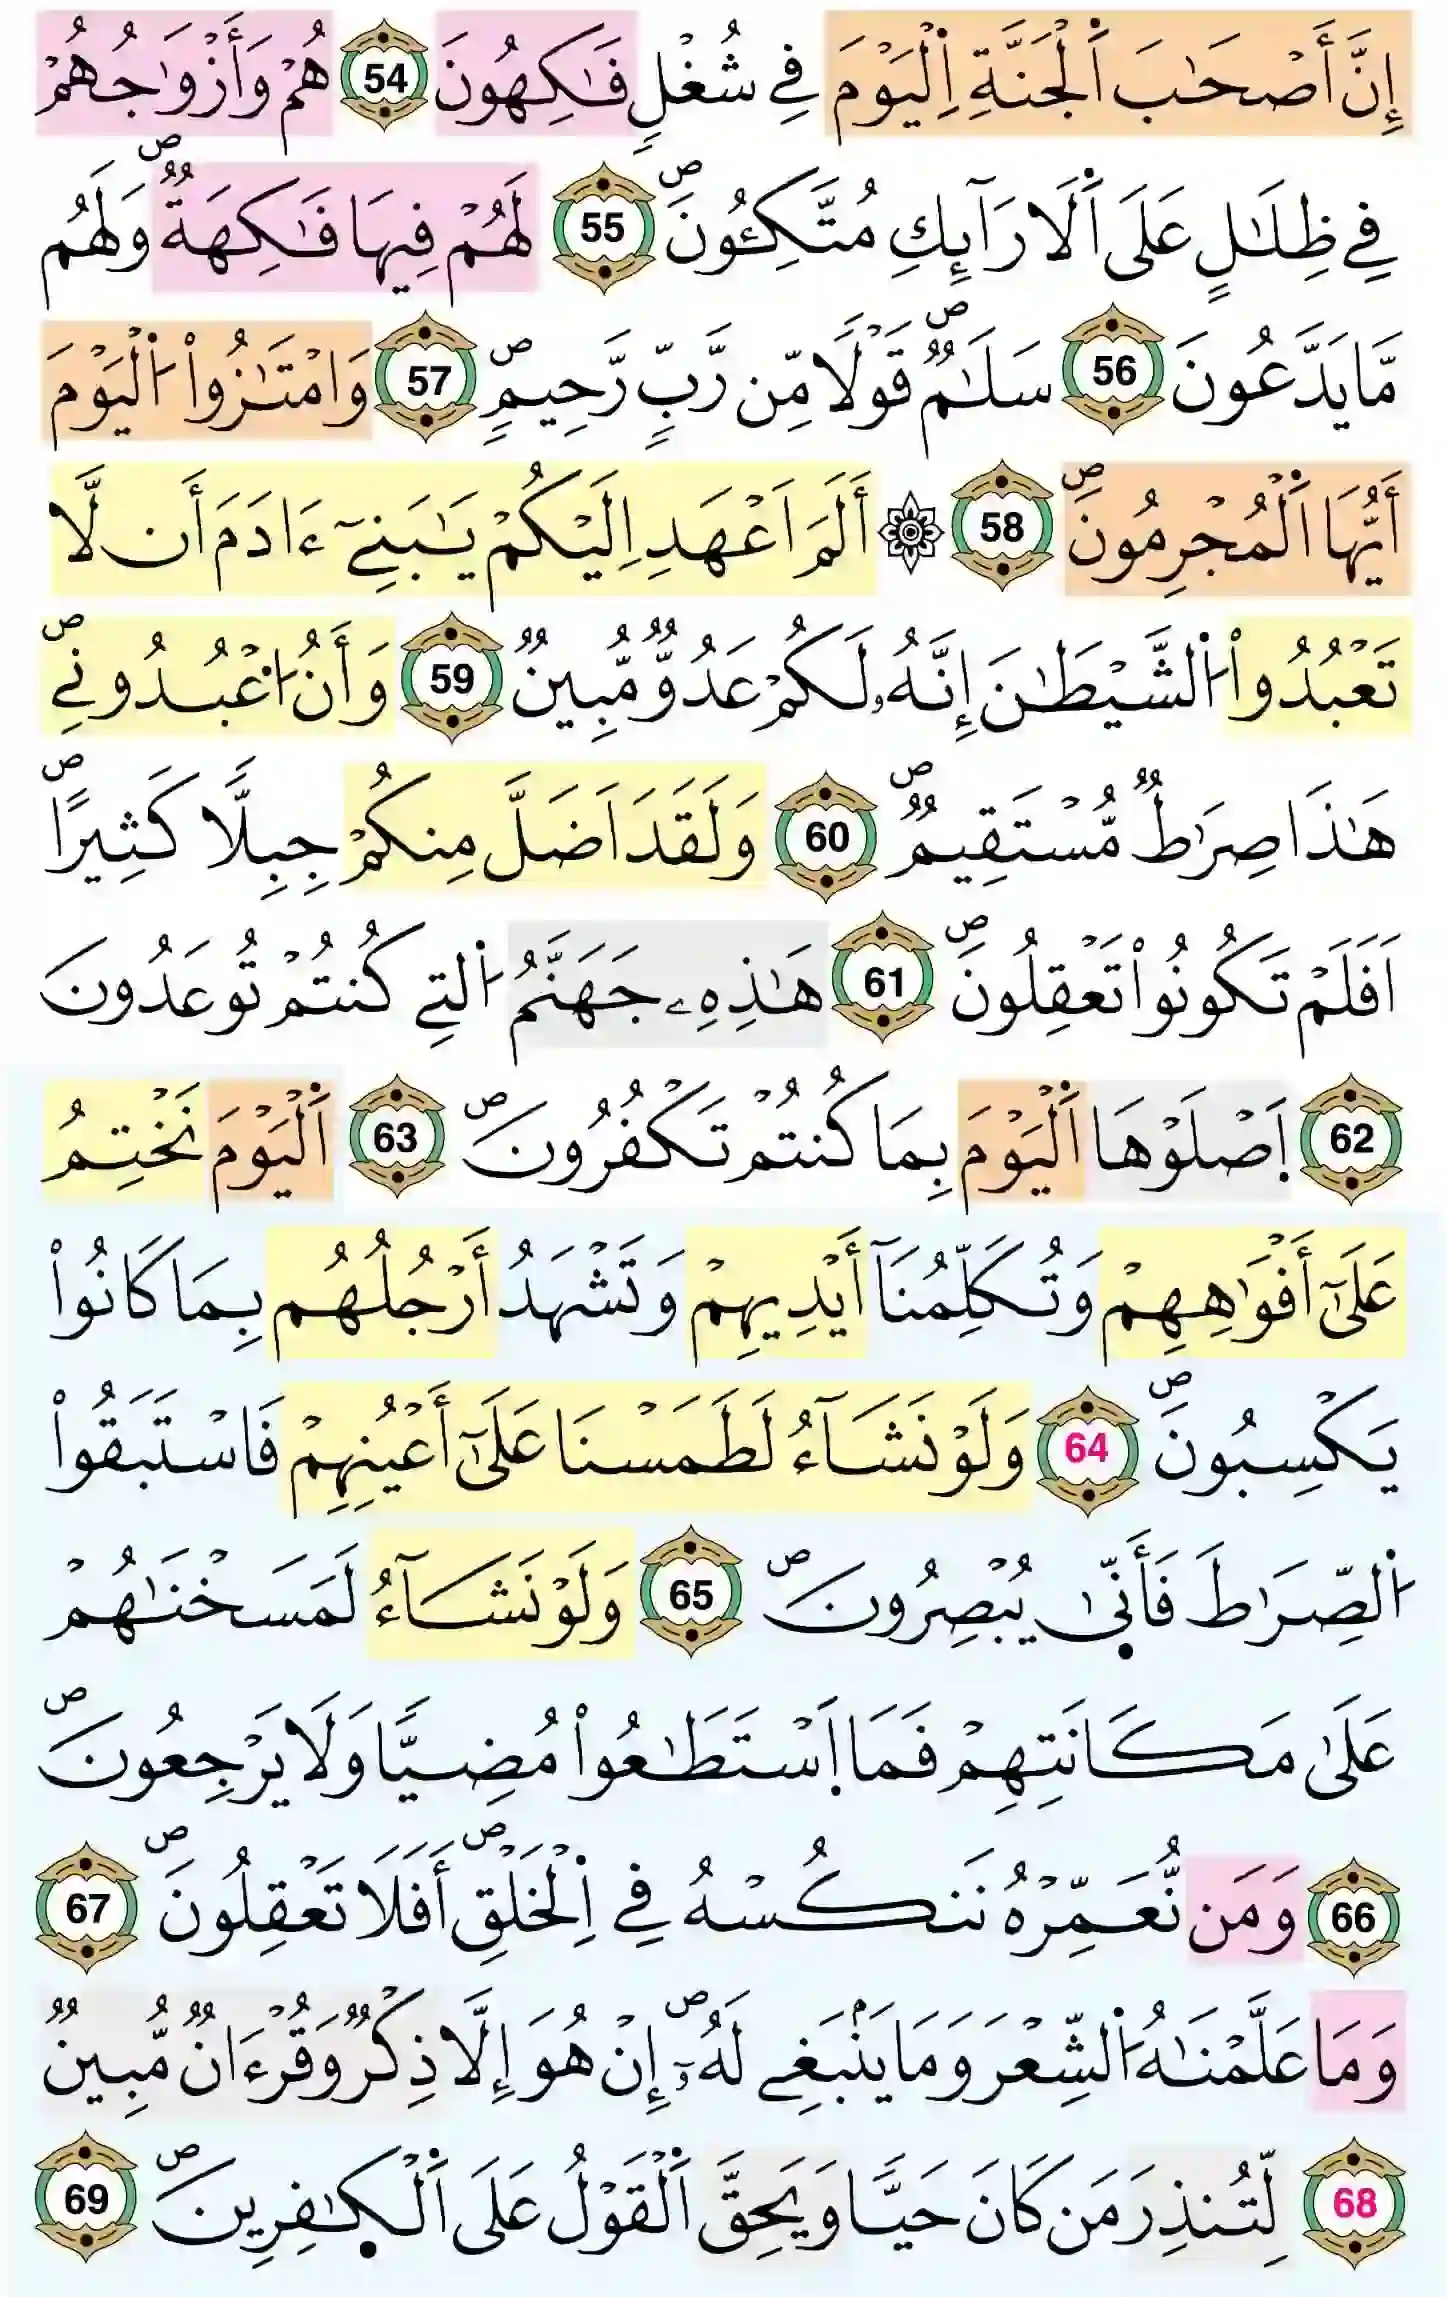 إِنَّ أَصْحَٰبَ اَ۬لْجَنَّةِ اِ۬لْيَوْمَ فِے شُغْلٖ فَٰكِهُونَ 54 هُمْ وَأَزْوَٰجُهُمْ
فِے ظِلَٰلٍ عَلَى اَ۬لَارَآئِكِ مُتَّكِـُٔونَۖ 55 لَهُمْ فِيهَا فَٰكِهَةٞۖ وَلَهُم
مَّا يَدَّعُونَ 56 سَلَٰمٞۖ قَوْلاٗ مِّن رَّبّٖ رَّحِيمٖۖ 57 وَامْتَٰزُواْ اُ۬لْيَوْمَ
أَيُّهَا اَ۬لْمُجْرِمُونَۖ 58 ۞ أَلَمَ اَعْهَدِ اِلَيْكُمْ يَٰبَنِےٓ ءَادَمَ أَن لَّا
تَعْبُدُواْ اُ۬لشَّيْطَٰنَ إِنَّهُۥ لَكُمْ عَدُوّٞ مُّبِينٞ 59 وَأَنُ اُ۟عْبُدُونِےۖ
هَٰذَا صِرَٰطٞ مُّسْتَقِيمٞۖ 60 وَلَقَدَ اَضَلَّ مِنكُمْ جِبِلّاٗ كَثِيراًۖ
اَفَلَمْ تَكُونُواْ تَعْقِلُونَۖ 61 هَٰذِهِۦ جَهَنَّمُ اُ۬لتِے كُنتُمْ تُوعَدُونَ
62 اَ۪صْلَوْهَا اَ۬لْيَوْمَ بِمَا كُنتُمْ تَكْفُرُونَۖ 63 اَ۬لْيَوْمَ نَخْتِمُ
عَلَىٰٓ أَفْوَٰهِهِمْ وَتُكَلِّمُنَآ أَيْدِيهِمْ وَتَشْهَدُ أَرْجُلُهُم بِمَا كَانُواْ
يَكْسِبُونَۖ 64 وَلَوْ نَشَآءُ لَطَمَسْنَا عَلَىٰٓ أَعْيُنِهِمْ فَاسْتَبَقُواْ
اُ۬لصِّرَٰطَ فَأَنّ۪ىٰ يُبْصِرُونَۖ 65 وَلَوْ نَشَآءُ لَمَسَخْنَٰهُمْ
عَلَىٰ مَكَانَتِهِمْ فَمَا اَ۪سْتَطَٰعُواْ مُضِيّاٗ وَلَا يَرْجِعُونَۖ
66 وَمَن نُّعَمِّرْهُ نَنكُسْهُ فِے اِ۬لْخَلْقِۖ أَفَلَا تَعْقِلُونَۖ 67
وَمَا عَلَّمْنَٰهُ اُ۬لشِّعْرَ وَمَا يَنۢبَغِے لَهُۥٓۖ إِنْ هُوَ إِلَّا ذِكْرٞ وَقُرْءَانٞ مُّبِينٞ
68 لِّتُنذِرَ مَن كَانَ حَيّاٗ وَيَحِقَّ اَ۬لْقَوْلُ عَلَى اَ۬لْكٰ۪فِرِينَۖ 69